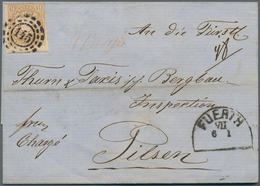 An die Fürstl
Thurn & Taxis'sche Bergbau
Inspection
franco
Chargé
Pilsen
145
FUERTH
VII
6 1